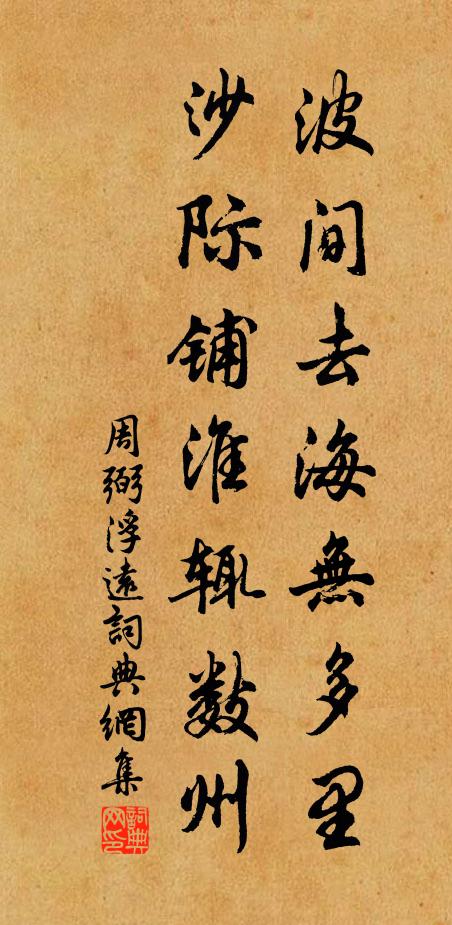 波间去海無多里
沙际铺淮辄数州
周弼浮遠詞典網集
詞典网印